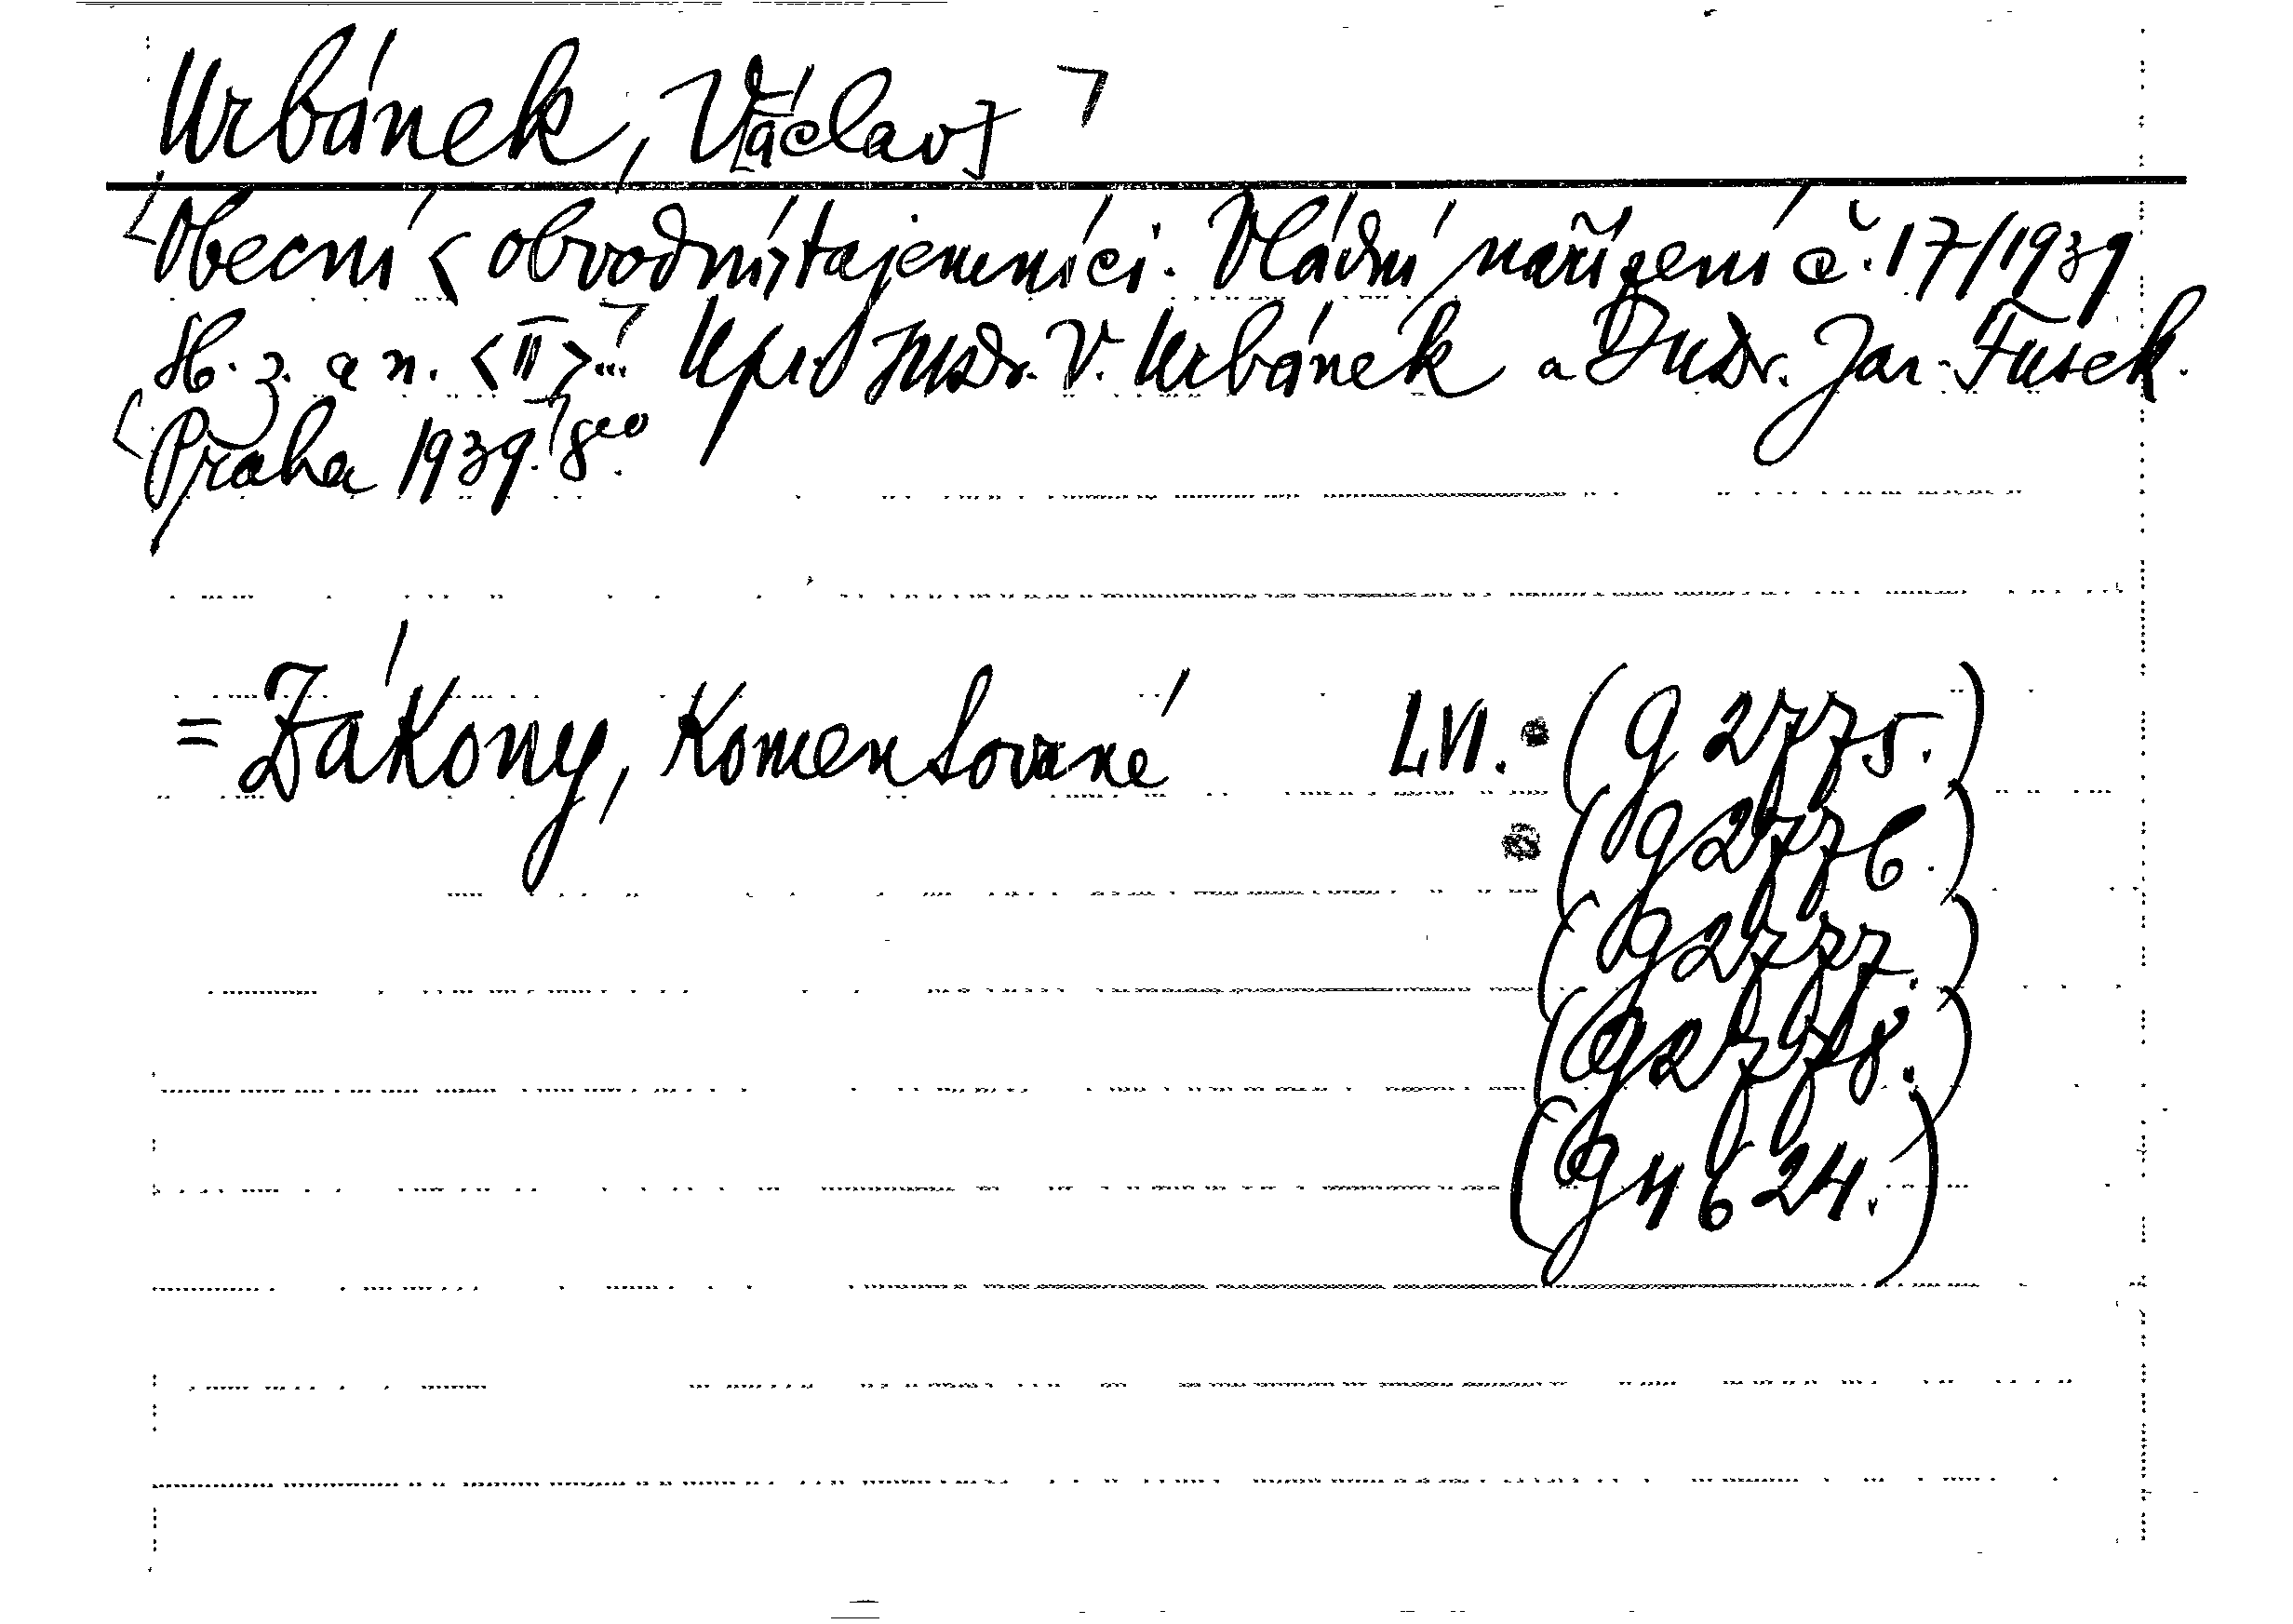 Urbánek, V[áclav]
Obecní <obvodní> tajemníci. Vládní nařízení č. 17/1939
Sb. z. a n. <II>... Upr. JUDr. V. Urbánek a JUDr. Jar. Fusek.
Praha 1939. 8°.
= Zákony, komentované LVI. (g 2775.)
(g 2776.)
(g 2777.)
(g 2778.)
(g 4624.)